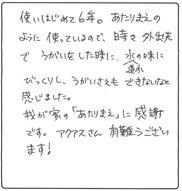 使いはじめて6年。あたりまえの
ように使っているので、時々外出先
で うがいをした時に、水の味に
びっくりし、うがいさえもできないなと
感じました。
我が家の「あたりまえ」に感謝
です。アクアスさん 有難うござい
ます!